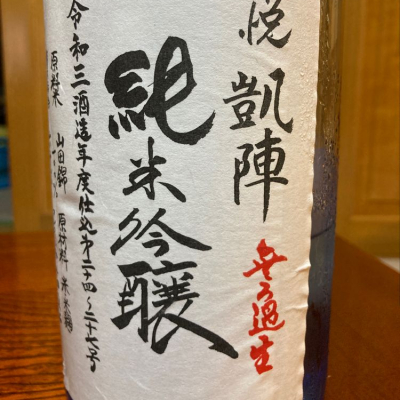 悦 凱陣
無ろ過生
純米吟醸
令和三酒造年度仕込第二十四～二十七号
山田錦 原材料 米 米麹